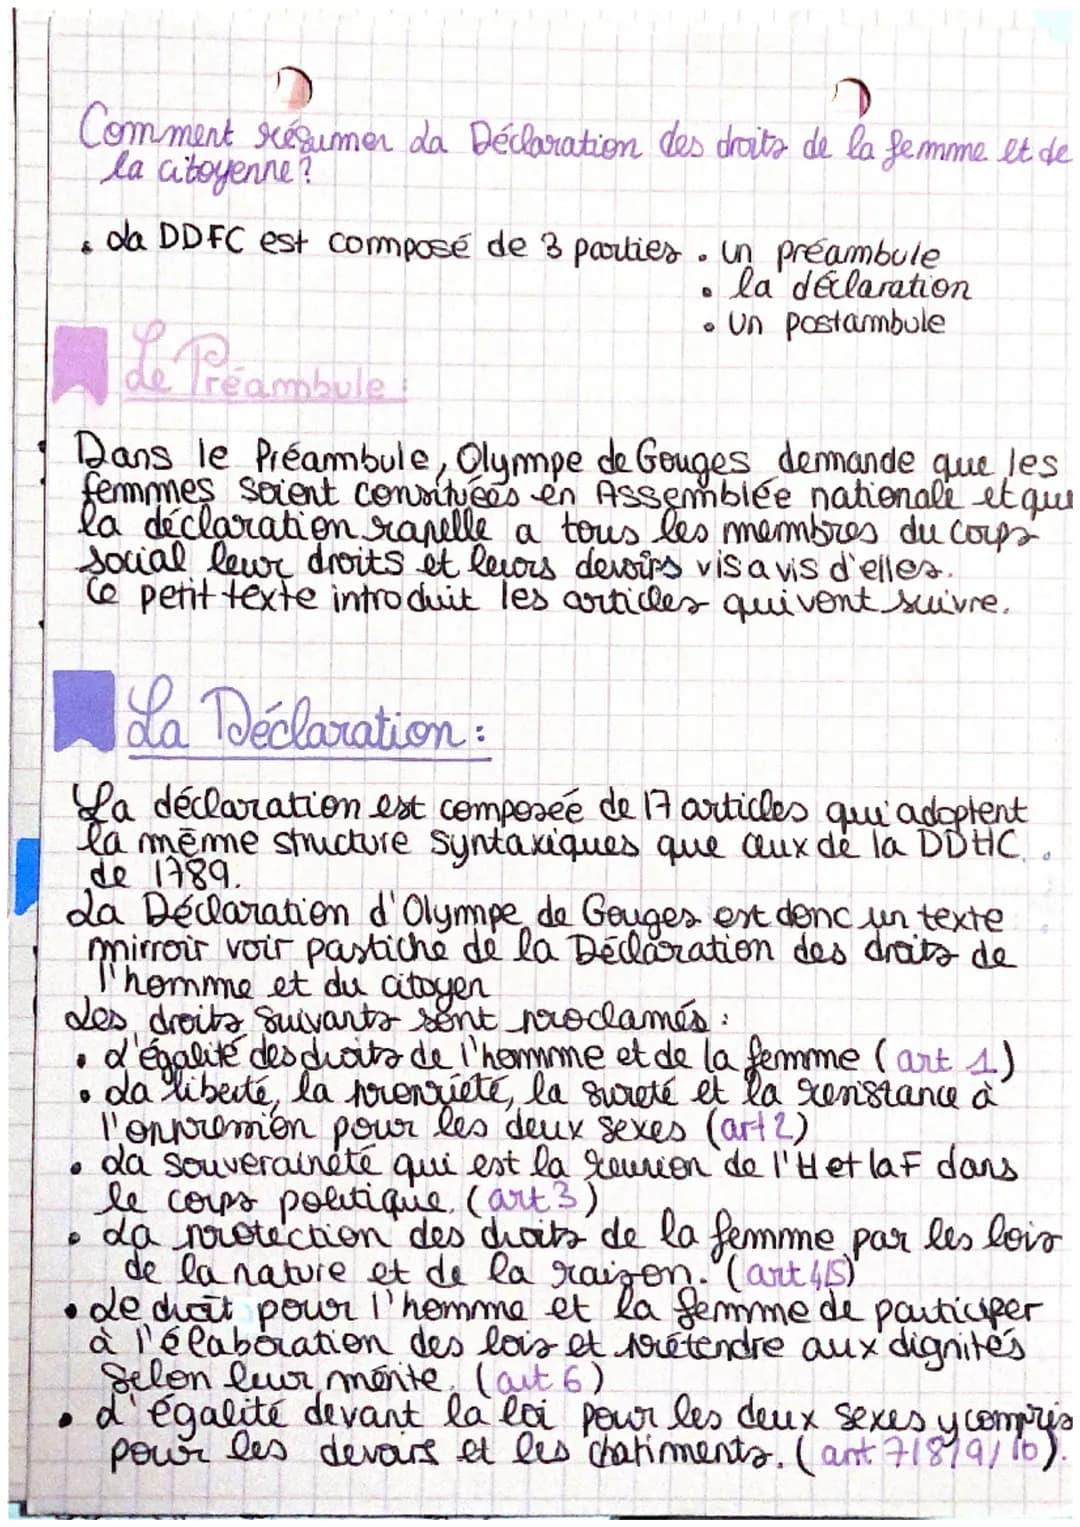 Comment résumer La Déclaration des droits de la femme et de
la citoyenne ?
• La DDFC est composé de 3 parties • un préambule
• la déclaration
• Un postambule
Le Préambule :
Dans le Préambule, Olympe de Gouges demande que les
femmes soient consituées en Assemblée nationale et que
la déclaration rapelle a tous les membres du corps
social leur droits et leurs devoirs vis a vis d'elles.
Ce petit texte introduit les articles qui vont suivre.
La Déclaration :
La déclaration est composée de 17 articles qui adoptent
la même structure syntaxiques que ceux de la DDHC
de 1789.
La Déclaration d'Olympe de Gouges est donc un texte
mirroir voir pastiche de la Déclaration des droits de
l'homme et du citoyen
Les droits suivants sont proclamés :
• L'égalité des droits de l'homme et de la femme (art 1)
• La liberté, la propriété, la sureté et la resistance à
l'oppression pour les deux sexes (art 2)
• La souveraineté qui est la reunion de l'H et la F dans
le corps politique. (art 3)
• La protection des droits de la femme par les lois
de la nature et de la raison. (art 4/5)
• Le droit pour l'homme et la femme de participer
à l'élaboration des lois et prétendre aux dignités
selon leur mérite. (art 6)
• L'égalité devant la loi pour les deux sexes y compris
pour les devoirs et les chatiments. (art 7/8/9/10).